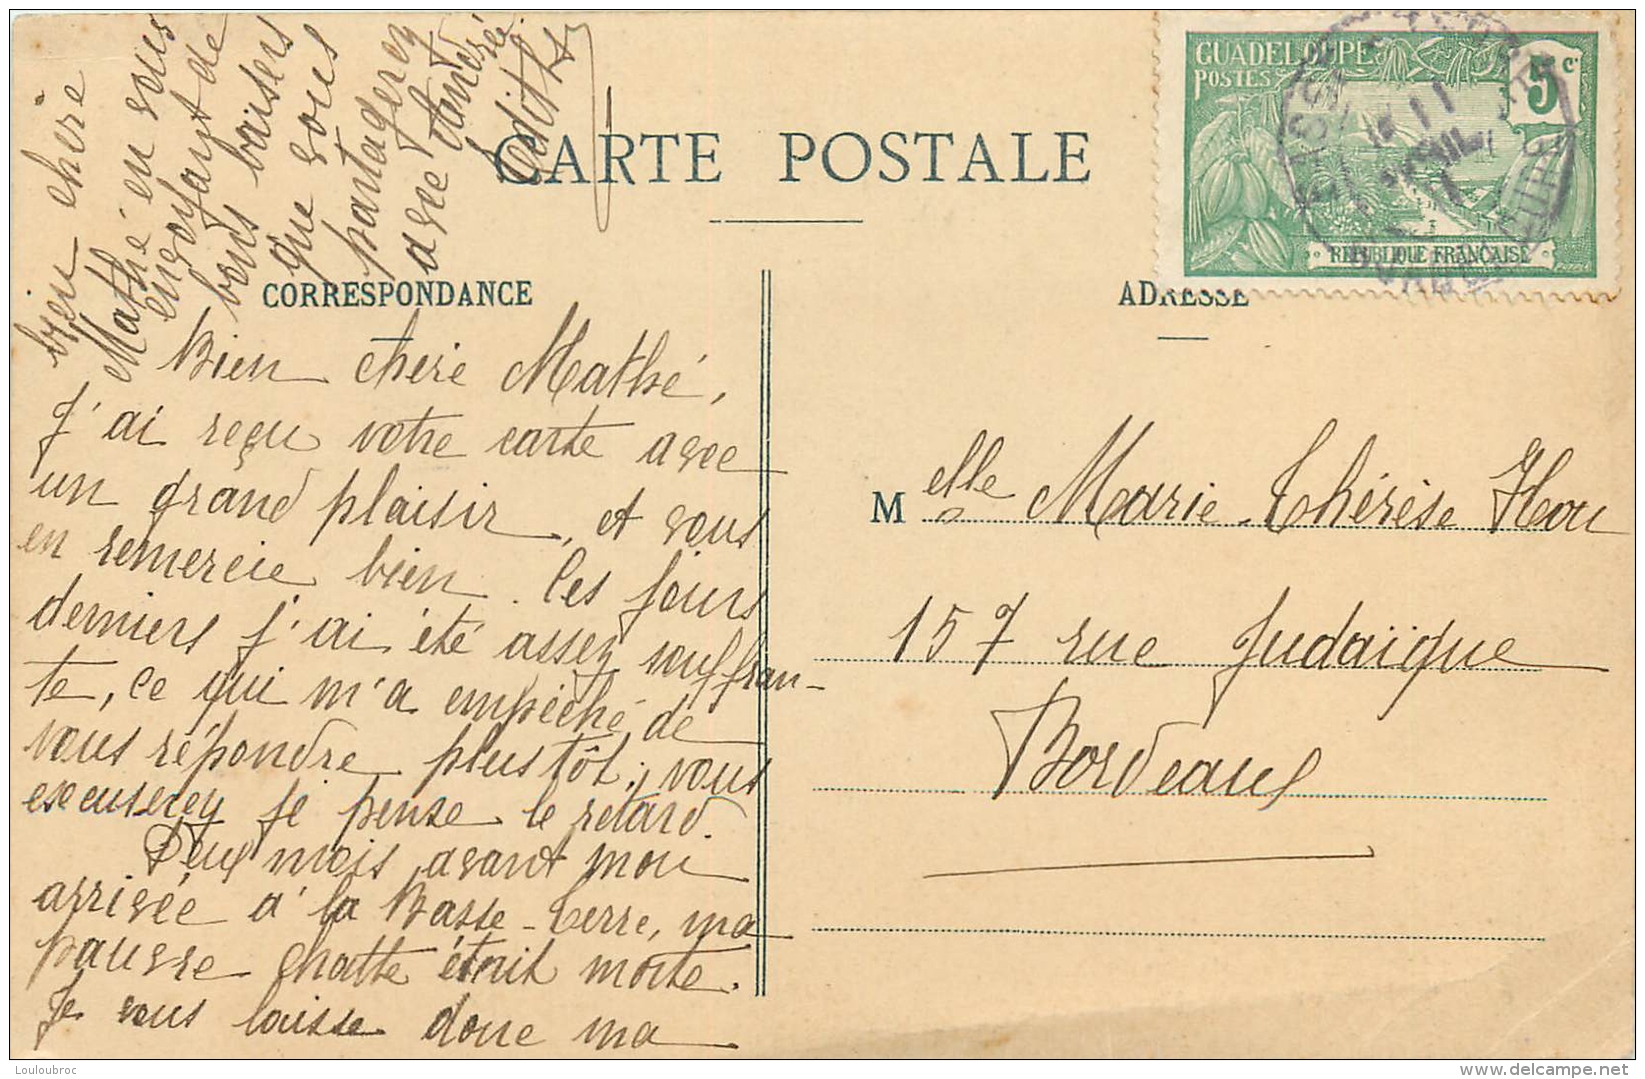 GUADELOUPE
POSTES
5 c.
REPUBLIQUE FRANÇAISE
CARTE POSTALE
CORRESPONDANCE
ADRESSE
Bien chère Mathé,
J'ai reçu votre carte avec
un grand plaisir, et vous
en remercie bien. Ces jours
derniers j'ai été assez souffran-
te, ce qui m'a empêché de
vous répondre plustôt; vous
excuserez je pense le retard.
Deux mois avant mon
arrivée à la Basse-Terre, ma
pauvre chatte était morte.
Je vous laisse donc ma
bien chère
Mathé en vous
envoyant de
bons baisers
que vous
partagerez
avec Andrée
Edith
Melle Marie-Thérèse
157 rue Judaïque
Bordeaux
Louloubroc
delcampe.net